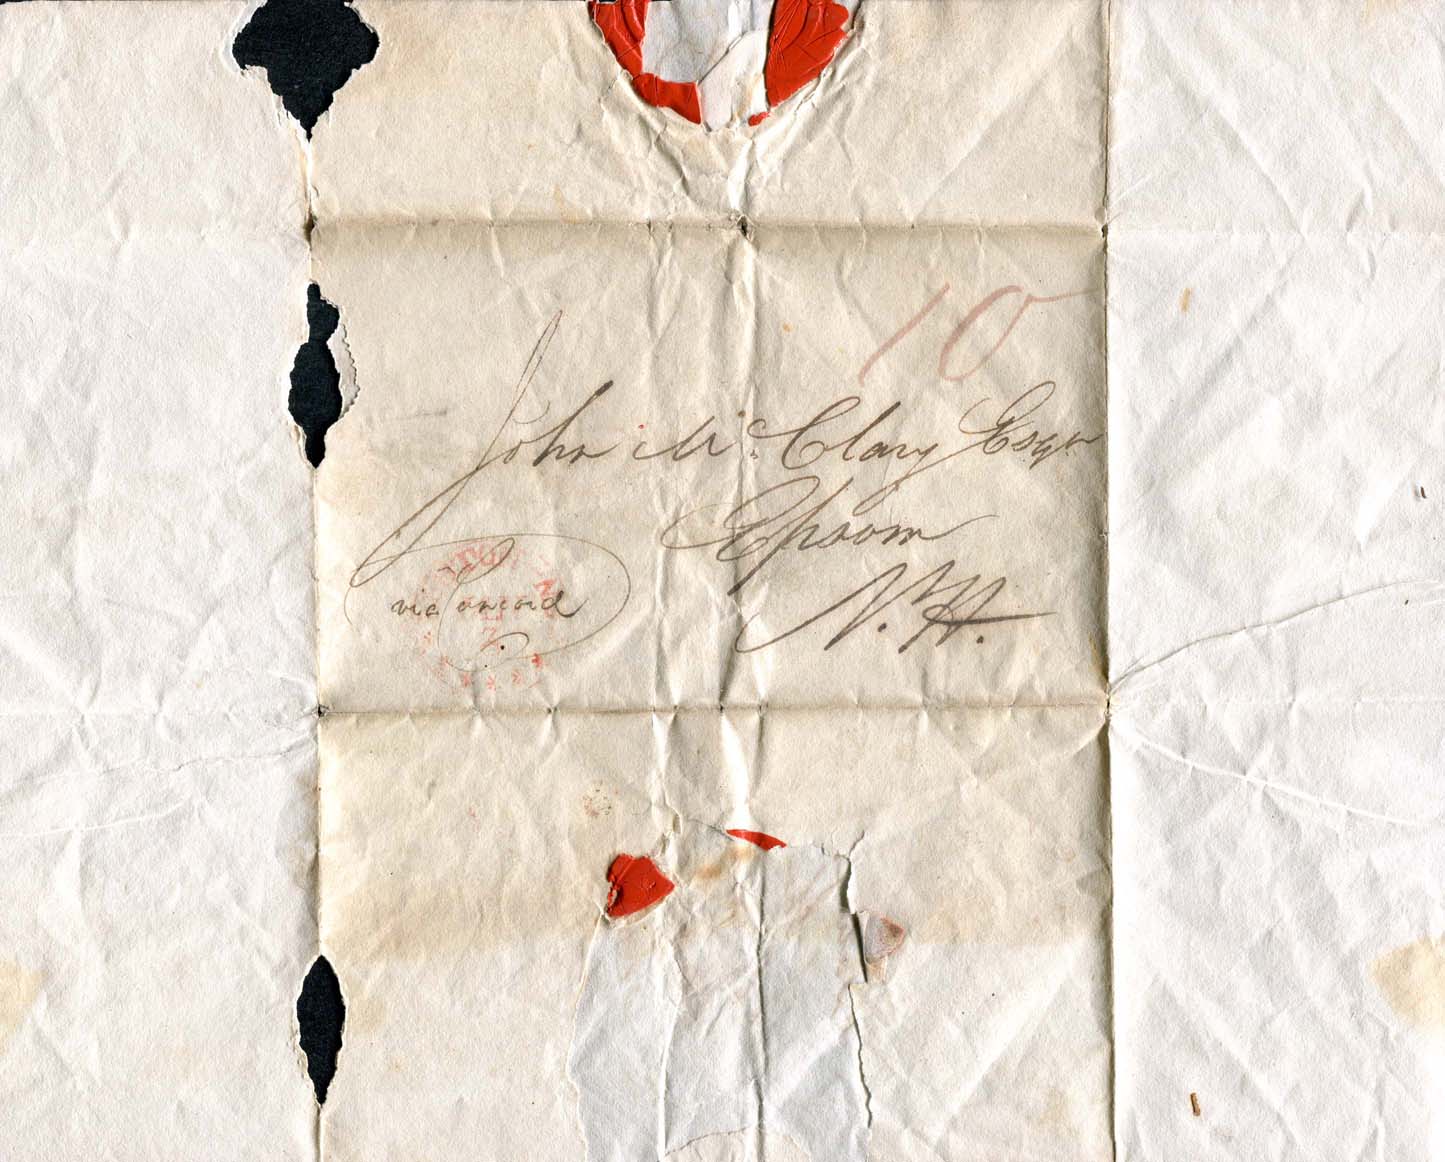 10
John Mc. Clary Esqr
Epsom
N. H.
via Concord